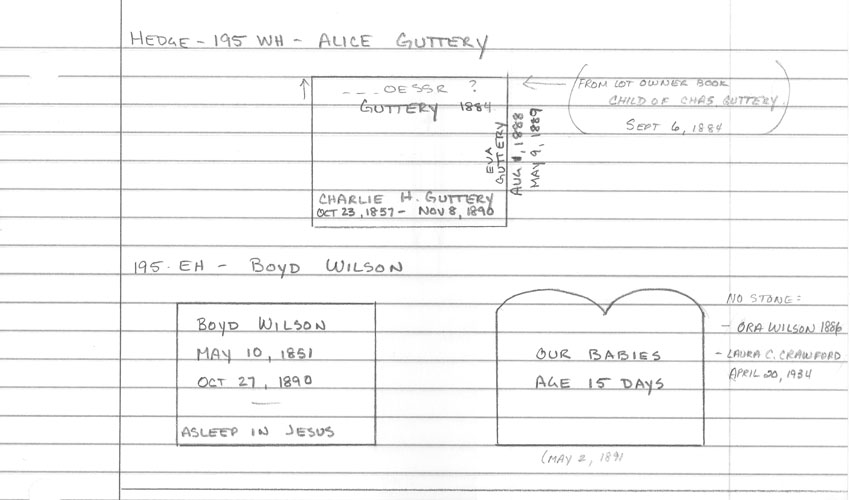 HEDGE - 195 WH - ALICE GUTTERY
_ _ _ OESSR ?
GUTTERY 1884
FROM LOT OWNER BOOK
CHILD OF CHAS. GUTTERY.
SEPT 6, 1884
EVA
GUTTERY
AUG 1, 1888
MAY 9, 1889
CHARLIE H. GUTTERY
OCT 23, 1857 - NOV 8, 1890
195 EH - BOYD WILSON
BOYD WILSON
MAY 10, 1851
OCT 27, 1890
ASLEEP IN JESUS
OUR BABIES
AGE 15 DAYS
(MAY 2, 1891
NO STONE:
- ORA WILSON 1886
- LAURA C. CRAWFORD
APRIL 20, 1934